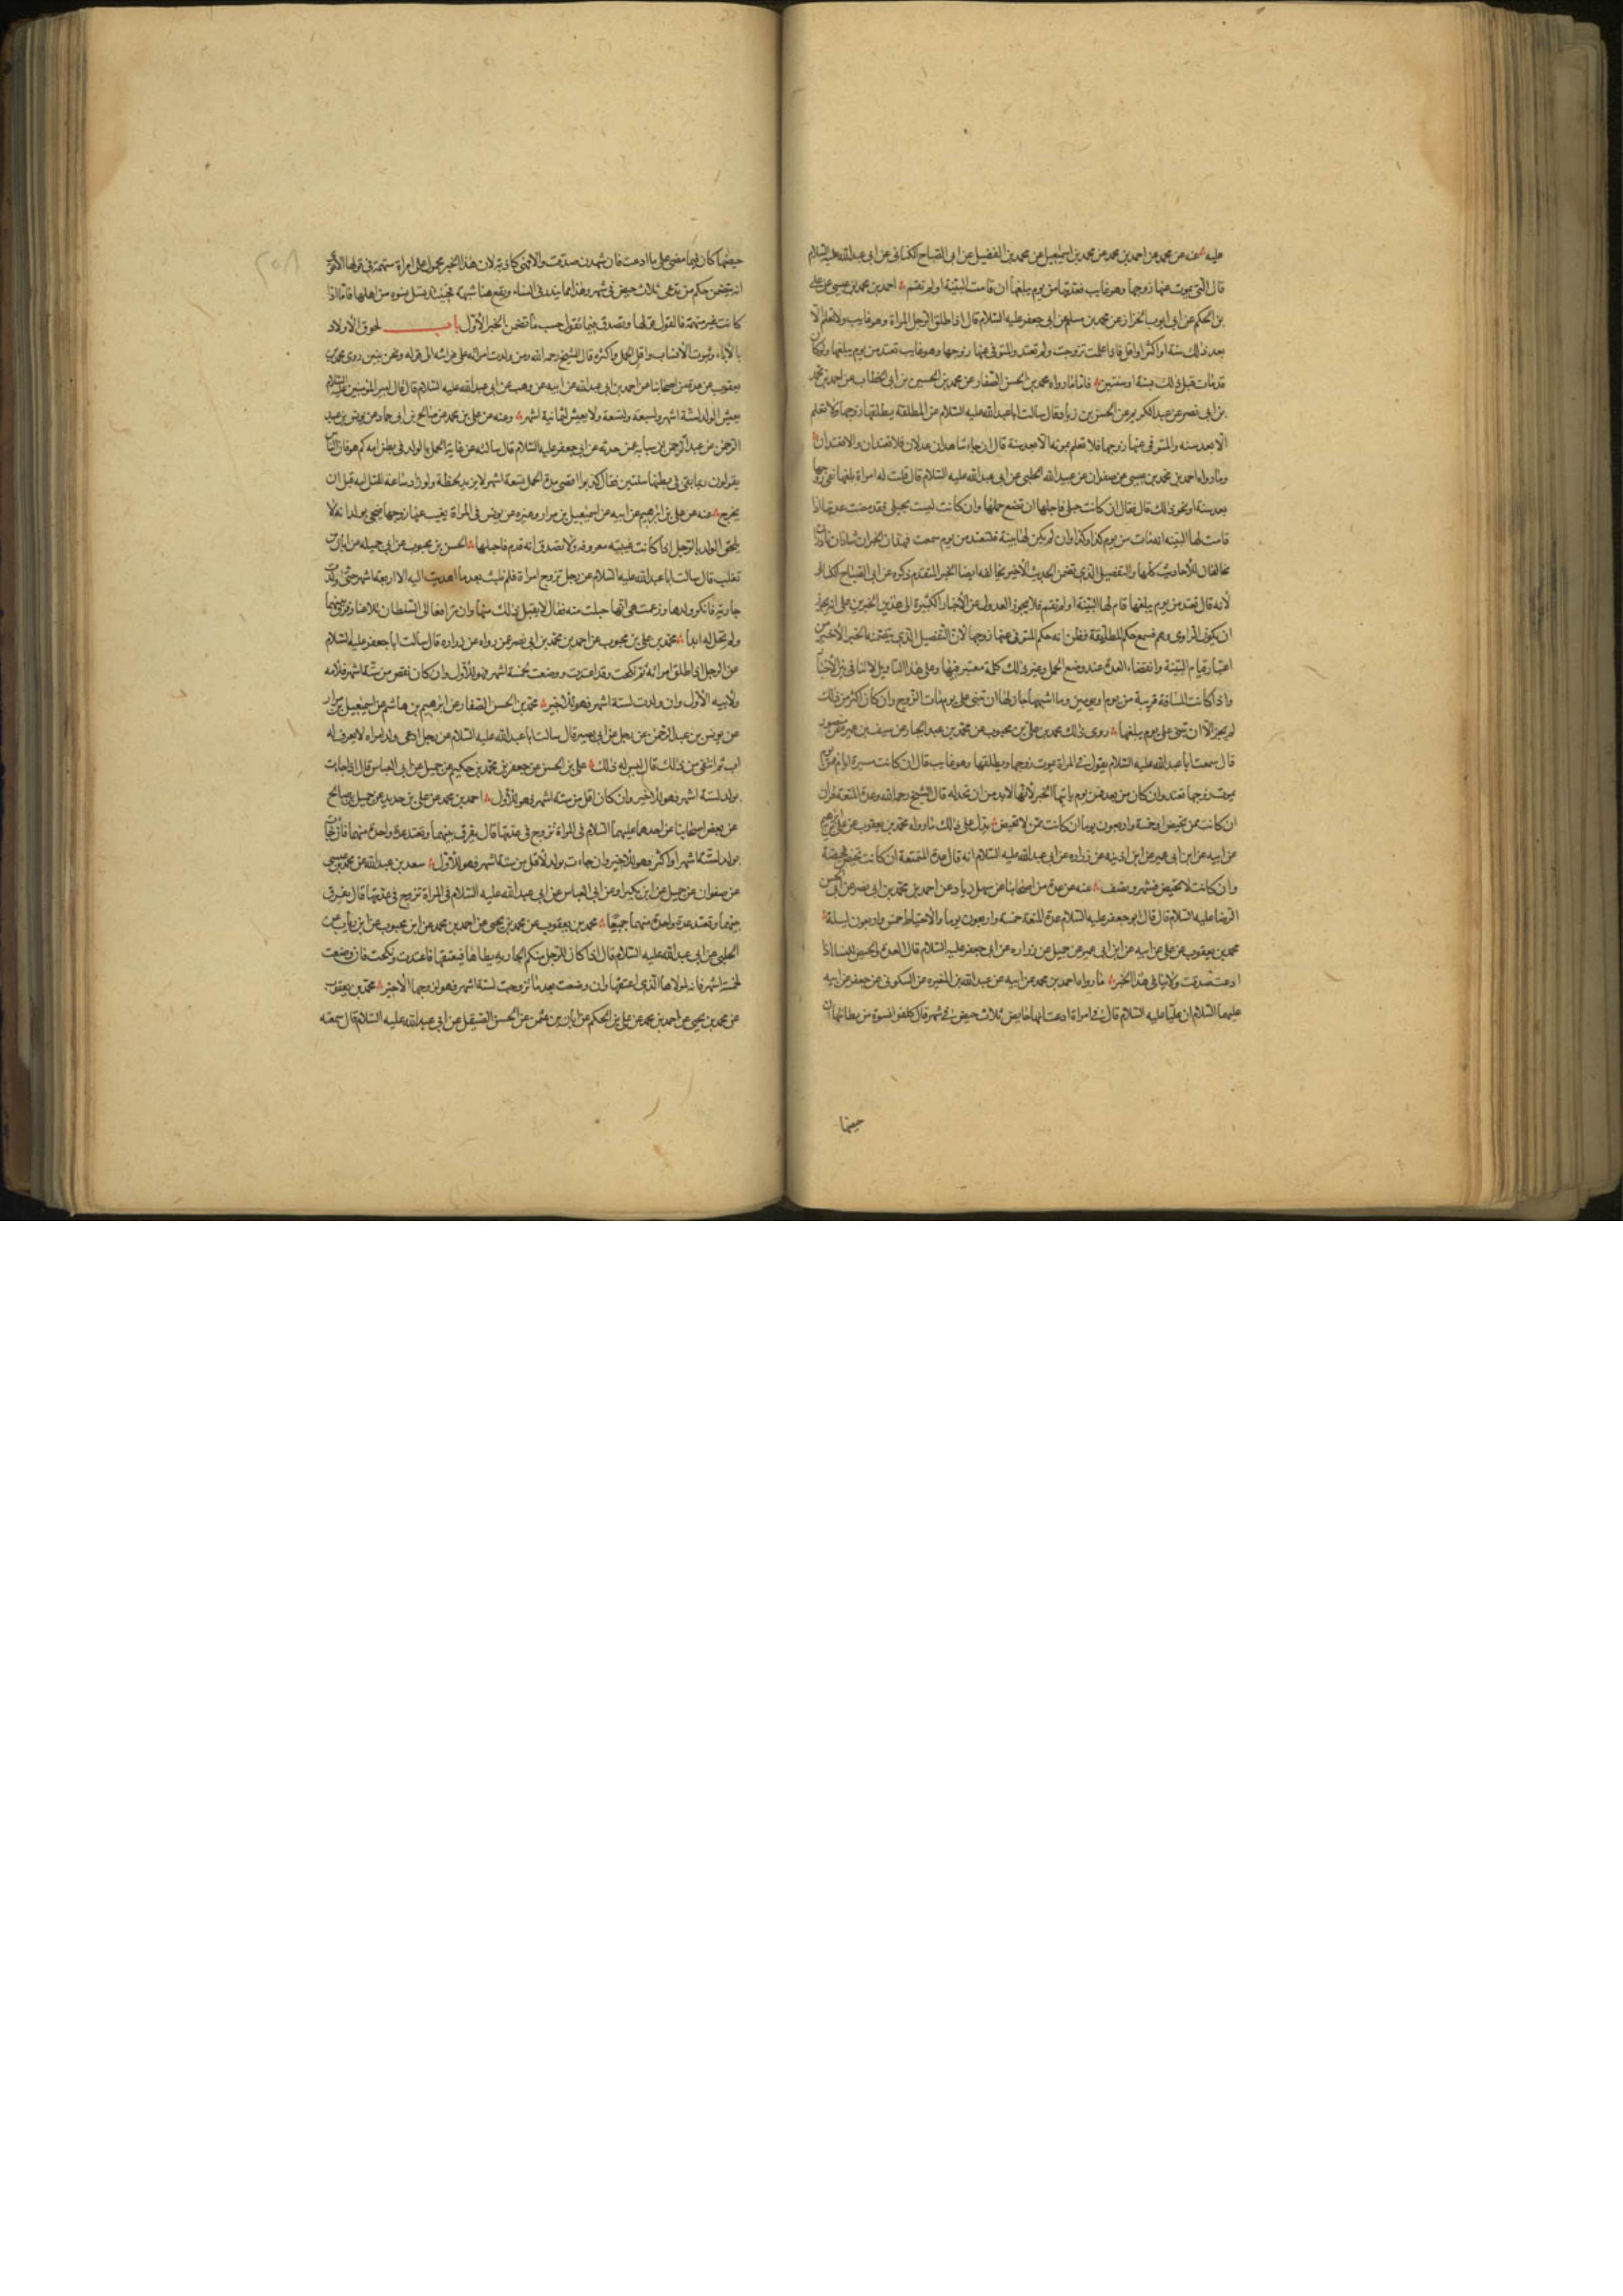 عليه عنه عن محمد عن احمد بن محمد عن محمد بن اسمعيل عن محمد بن الفضيل عن ابى الصباح الكنانى عن ابى عبد الله عليه السلام
قال التى يموت عنها زوجها وهو غايب فعدتها من يوم يبلغها ان قامت البينة او لم تقم احمد بن محمد بن عيسى عن على
بن الحكم عن ابى ايوب الخزاز عن محمد بن مسلم عن ابى جعفر عليه السلام قال اذا طلق الرجل المراة وهو غايب ولا تعلم الا
بعد ذلك بسنة او اكثر او اقل فاذا علمت تزوجت ولم تعتد والمتوفى عنها زوجها وهو غايب تعتد من يوم يبلغها ولو كان
قد مات قبل ذلك بسنة او سنتين فاما ما رواه محمد بن الحسن الصفار عن محمد بن الحسين بن ابى الخطاب عن احمد بن محمد
بن ابى نصر عن عبد الكريم عن الحسن بن زياد قال سالت ابا عبد الله عليه السلام عن المطلقة يطلقها زوجها ولا تعلم
الا بعد سنة والمتوفى عنها زوجها فلا تعلم بموته الا بعد سنة قال ان جاء شاهدان عدلان فلا تعتدان والا تعتدان
وما رواه احمد بن محمد بن عيسى عن صفوان عن عبيد الله الحلبى عن ابى عبد الله عليه السلام قال قلت له امراة بلغها نعى زوجها
بعد سنة او نحو ذلك قال فقال ان كانت حبلى فاجلها ان تضع حملها وان كانت ليست بحبلى فقد مضت عدتها اذا
قامت لها البينه انه مات من يوم كذا وكذا وان لم يكن لها بينة فلتعتد من يوم سمعت فهذان الخبران شاذان نادران
مخالفان للأحاديث كلها والتفصيل الذى تضمن الحديث الأخير يخالفه ايضا الخبر المتقدم ذكره عن ابى الصباح الكنانى
لأنه قال تعتد من يوم يبلغها قام لها البينة او لم تقم فلا يجوز العدول عن الأخبار الكثيرة الى هذين الخبرين على انه يجوز
ان يكون الراوى وهم فسمع حكم المطلقة فظن انه حكم المتوفى عنها زوجها لان التفصيل الذى يتضمنه الخبر الأخير من
اعتبار قيام البينة وانقضاء العدة عند وضع الحمل وغير ذلك كله معتبر فيها وعلى هذا التاويل لا تنافى بين الأخبار
واذا كانت المسافة قريبة من يوم او يومين وما اشبههما جاز لها ان تبنى على يوم مات الزوج وان كان اكثر من ذلك
لم يجز الا ان تبنى على يوم يبلغها روى ذلك محمد بن على بن محبوب عن محمد بن عبد الجبار عن سيف بن عميرة عن منصور
قال سمعت ابا عبد الله عليه السلام يقول فى المراة يموت زوجها او يطلقها وهو غايب قال ان كانت مسيرة ايام فمن يوم
يموت زوجها تعتد وان كان من بعد فمن يوم ياتيها الخبر لأنها لا بد من ان تحد له قال الشيخ رحمه الله وعدة المتعة قران
ان كانت ممن تحيض او خمسة واربعون يوما ان كانت ممن لا تحيض يدل على ذلك ما رواه محمد بن يعقوب عن على بن ابرهيم
عن ابيه عن ابن ابى عمير عن ابن اذينه عن زراره عن ابى عبد الله عليه السلام انه قال عدة المتعة ان كانت تحيض فحيضة
وان كانت لا تحيض فشهر ونصف عنه عن عدة من اصحابنا عن سهل بن زياد عن احمد بن محمد بن ابى نصر عن ابى الحسن
الرضا عليه السلام قال قال ابو جعفر عليه السلام عدة المتعة خمسة واربعون يوما والاحتياط خمس واربعون ليلة
محمد بن يعقوب عن على عن ابيه عن ابن ابى عمير عن جميل عن زراره عن ابى جعفر عليه السلام قال العدة والحيض للنساء اذا
ادعت صدقت ولا ينافى هذا الخبر ما رواه احمد بن محمد عن ابيه عن عبد الله بن المغيره عن السكونى عن جعفر عن ابيه
عليهما السلام ان عليا عليه السلام قال فى امراة ادعت انها حاضت ثلاث حيض فى شهر قال كلفوا نسوة من بطانتها ان
حيضها
حيضها كان فيما مضى على ما ادعت فان شهدن صدقت والا فهى كاذبة لان هذا الخبر محمول على امراة متهمة فى قولها الا ترى
انه يتضمن حكم من تدعى ثلاث حيض فى شهر وهذا مما يندر فى النساء ويقع هنا شبهة فحينئذ يسئل نسوة من اهلها فاما اذا
كانت غير متهمة فالقول قولها وتصدق فيما تقول حسب ما تضمن الخبر الأول باب لحوق الأولاد
بالآباء وثبوت الأنساب واقل الحمل واكثره قال الشيخ رحمه الله ومن ولدت امراته على فراشه الى قوله ونحن نبين روى محمد بن
يعقوب عن عدة من اصحابنا عن احمد بن ابى عبد الله عن ابيه عن وهب عن ابى عبد الله عليه السلام قال قال امير المؤمنين عليه السلام
يعيش الولد لستة اشهر ولسبعة ولتسعة ولا يعيش لثمانية اشهر وعنه عن على بن محمد عن صالح بن ابى حماد عن يونس بن عبد
الرحمن عن عبد الرحمن بن سيابه عمن حدثه عن ابى جعفر عليه السلام قال سالته عن غاية الحمل بالولد فى بطن امه كم هو فان الناس
يقولون ربما بقى فى بطنها سنتين فقال كذبوا اقصى مدة الحمل تسعة اشهر لا يزيد لحظة ولو زاد ساعة لقتل امه قبل ان
يخرج عنه عن على بن ابرهيم عن ابيه عن اسمعيل بن مرار وغيره عن يونس فى المراة يغيب عنها زوجها فتجى بولد انه لا
يلحق الولد بالرجل اذا كانت غيبته معروفه ولا تصدق انه قدم فاحبلها الحسن بن محبوب عن ابى جميله عن ابان بن
تغلب قال سالت ابا عبد الله عليه السلام عن رجل تزوج امراة فلم تلبث بعد ما اهديت اليه الا اربعة اشهر حتى ولدت
جارية فانكر ولدها وزعمت هى انها حبلت منه فقال لا يقبل ذلك منها وان ترافعا الى السلطان تلاعنا وفرق بينهما
ولم تحل له ابدا محمد بن على بن محبوب عن احمد بن محمد بن ابى نصر عمن رواه عن زراره قال سالت ابا جعفر عليه السلام
عن الرجل اذا طلق امراته ثم نكحت وقد اعتدت ووضعت لخمسة اشهر فهو للأول وان كان نقص من ستة اشهر فلأمه
ولأبيه الأول وان ولدت لستة اشهر فهو للأخير محمد بن الحسن الصفار عن ابرهيم بن هاشم عن اسمعيل بن مرار
عن يونس بن عبد الرحمن عن رجل عن ابى بصير قال سالت ابا عبد الله عليه السلام عن رجل ادعى ولد امراه لا يعرف له
اب ثم انتفى من ذلك قال ليس له ذلك على بن الحسن عن جعفر بن محمد بن حكيم عن جميل عن ابى العباس قال اذا جاءت
بولد لستة اشهر فهو للأخير وان كان اقل من ستة اشهر فهو للأول احمد بن محمد عن على بن حديد عن جميل بن صالح
عن بعض اصحابنا عن احدهما عليهما السلام فى المراة تزوج فى عدتها قال يفرق بينهما وتعتد عدة واحدة منهما فان جاءت
بولد لستة اشهر او اكثر فهو للأخير وان جاءت بولد لأقل من ستة اشهر فهو للأول سعد بن عبد الله عن محمد بن عيسى
عن صفوان عن جميل عن ابن بكير او عن ابى العباس عن ابى عبد الله عليه السلام فى المراة تزوج فى عدتها قال يفرق
بينهما وتعتد عدة واحدة منهما جميعا محمد بن يعقوب عن محمد بن يحيى عن احمد بن محمد عن ابن محبوب عن ابن رئاب عن
الحلبى عن ابى عبد الله عليه السلام قال اذا كان للرجل منكم الجاريه يطاها فيعتقها فاعتدت ونكحت فان وضعت
لخمسة اشهر فانه لمولاها الذى اعتقها وان وضعت بعد ما تزوجت لستة اشهر فهو لزوجها الأخير محمد بن يعقوب
عن محمد بن يحيى عن احمد بن محمد عن على بن الحكم عن ابان بن عثمن عن الحسن الصيقل عن ابى عبد الله عليه السلام قال سمعته